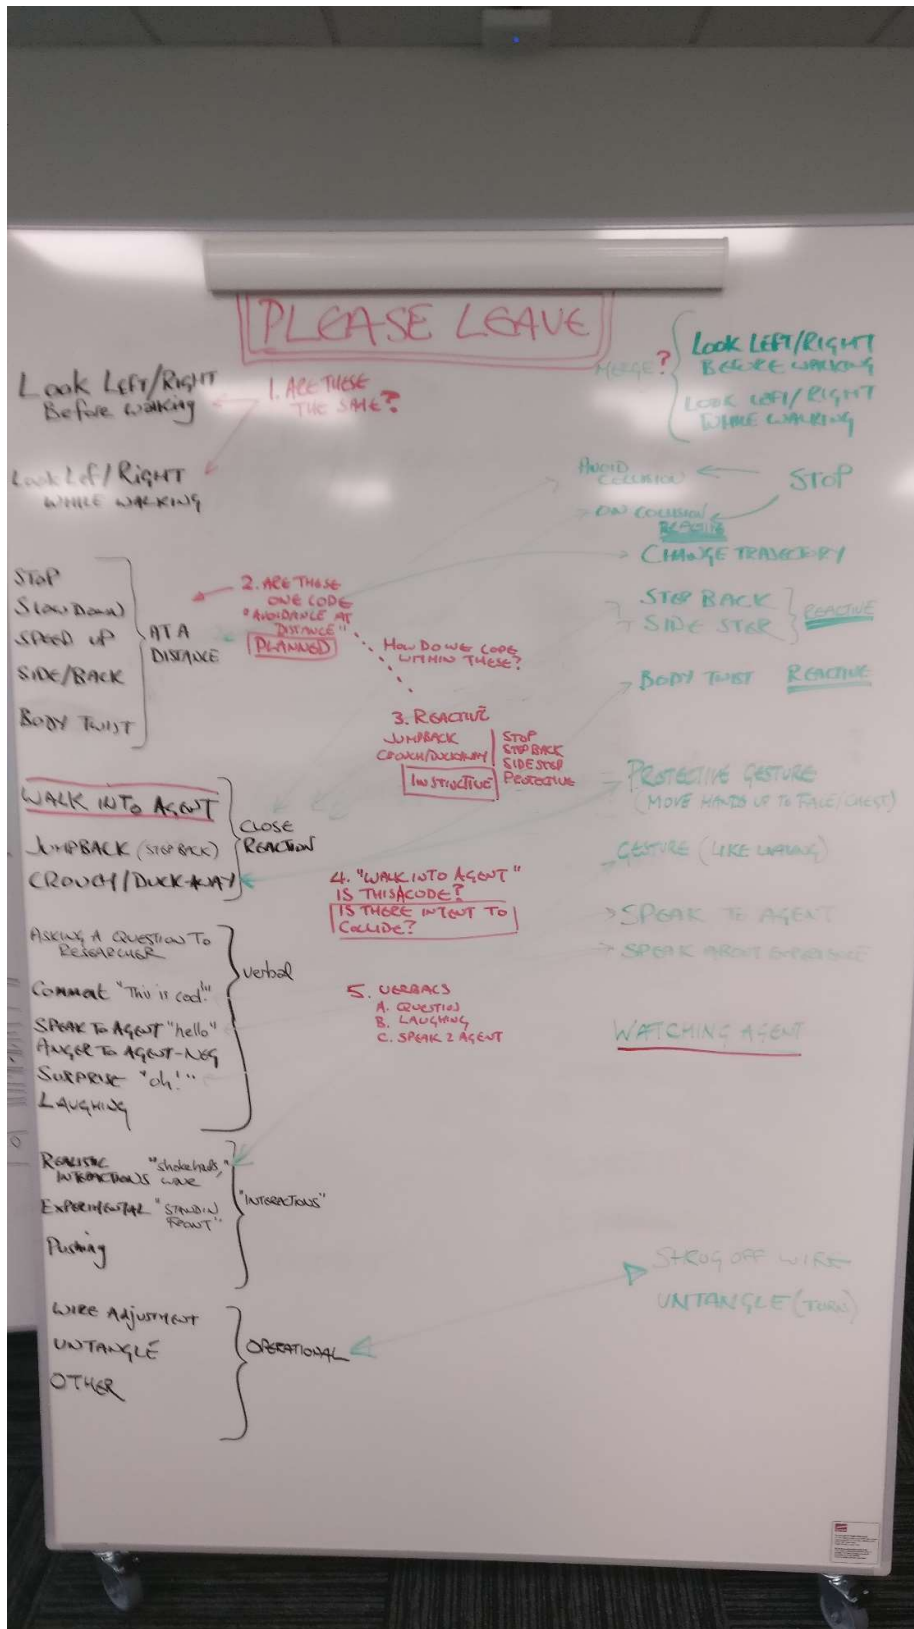 PLEASE LEAVE
Look LEFT/RIGHT
Before walking
Look Left/RIGHT
WHILE WALKING
STOP
Slow Down
SPEED UP
SIDE/BACK
BODY TWIST
AT A
DISTANCE
WALK INTO AGENT
JUMPBACK (STEP BACK)
CROUCH/DUCK-AWAY
CLOSE
REACTION
ASKING A QUESTION TO
RESEARCHER
Comment "This is cool!"
SPEAK TO AGENT "hello"
ANGER TO AGENT-NEG
SURPRISE "oh!"
LAUGHING
verbal
REALISTIC "shakehands,"
INTERACTIONS wave
EXPERIMENTAL "STAND IN
FRONT"
Pushing
"INTERACTIONS"
WIRE AdjustMENT
UNTANGLE
OTHER
OPERATIONAL
1. ARE THESE
THE SAME?
2. ARE THESE
ONE CODE
"AVOIDANCE AT
DISTANCE"
PLANNED
HOW DO WE CODE
WITHIN THESE?
3. REACTIVE
JUMPBACK
CROUCH/DUCKAWAY
INSTINCTIVE
STOP
STEP BACK
SIDE STEP
PROTECTIVE
4. "WALK INTO AGENT"
IS THIS A CODE?
IS THERE INTENT TO
COLLIDE?
5. VERBALS
A. QUESTION
B. LAUGHING
C. SPEAK 2 AGENT
MERGE?
Look LEFT/RIGHT
BEFORE WALKING
LOOK LEFT/RIGHT
WHILE WALKING
AVOID
COLLISION
STOP
ON COLLISION
REACTIVE
CHANGE TRAJECTORY
STEP BACK
SIDE STEP
REACTIVE
BODY TWIST REACTIVE
PROTECTIVE GESTURE
(MOVE HANDS UP TO FACE/CHEST)
GESTURE (LIKE WAVING)
SPEAK TO AGENT
SPEAK ABOUT EXPERIENCE
WATCHING AGENT
SHRUG OFF WIRE
UNTANGLE (TURN)